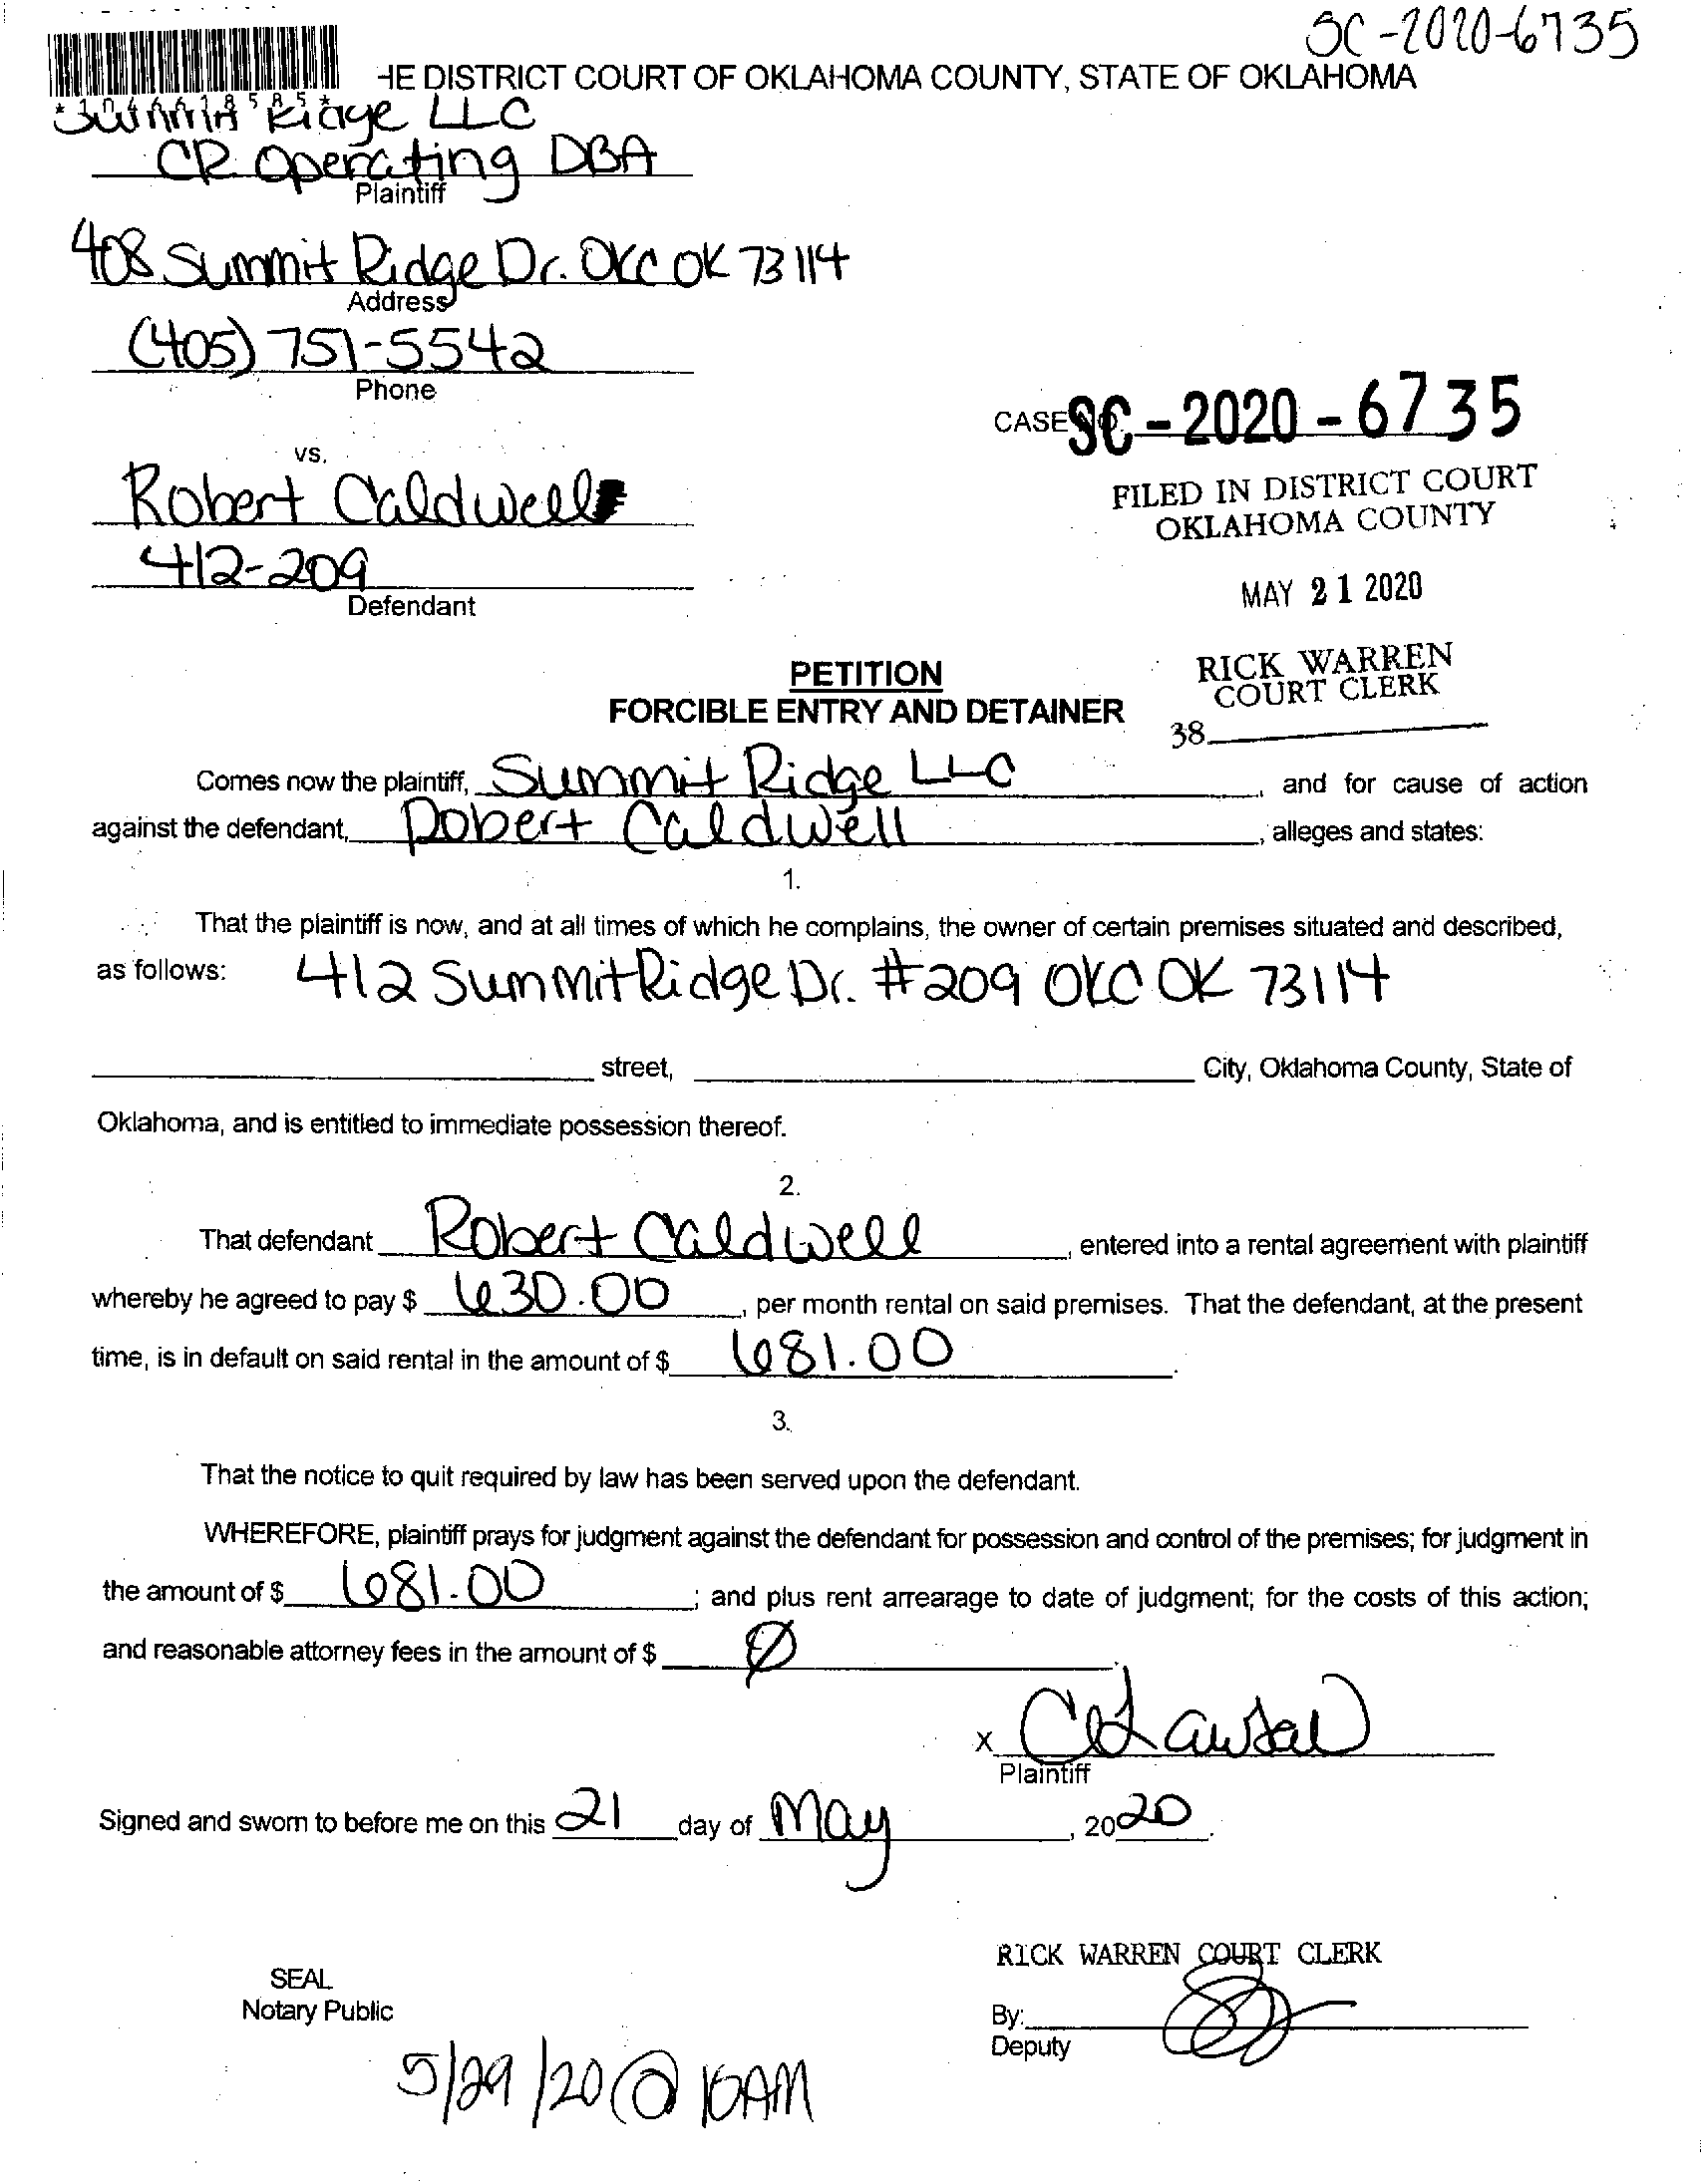 SC-2020-6735
HE DISTRICT COURT OF OKLAHOMA COUNTY, STATE OF OKLAHOMA
*1046618585*
Summit Ridge LLC
CR Operating DBA
Plaintiff
408 Summit Ridge Dr. OKC OK 73114
Address
(405) 751-5542
Phone
CASE NO. SC-2020-6735
vs.
FILED IN DISTRICT COURT
OKLAHOMA COUNTY
Robert Caldwell
412-209
Defendant
MAY 21 2020
RICK WARREN
COURT CLERK
38
PETITION
FORCIBLE ENTRY AND DETAINER
Comes now the plaintiff, Summit Ridge LLC, and for cause of action
against the defendant, Robert Caldwell, alleges and states:
1.
That the plaintiff is now, and at all times of which he complains, the owner of certain premises situated and described,
as follows: 412 Summit Ridge Dr. #209 OKC OK 73114
street, City, Oklahoma County, State of
Oklahoma, and is entitled to immediate possession thereof.
2.
That defendant Robert Caldwell, entered into a rental agreement with plaintiff
whereby he agreed to pay $ 630.00, per month rental on said premises. That the defendant, at the present
time, is in default on said rental in the amount of $ 681.00.
3.
That the notice to quit required by law has been served upon the defendant.
WHEREFORE, plaintiff prays for judgment against the defendant for possession and control of the premises; for judgment in
the amount of $ 681.00; and plus rent arrearage to date of judgment; for the costs of this action;
and reasonable attorney fees in the amount of $ Ø.
x
Plaintiff
Signed and sworn to before me on this 21 day of May, 2020.
RICK WARREN COURT CLERK
SEAL
Notary Public
By:
Deputy
5/29/20 @ 10AM